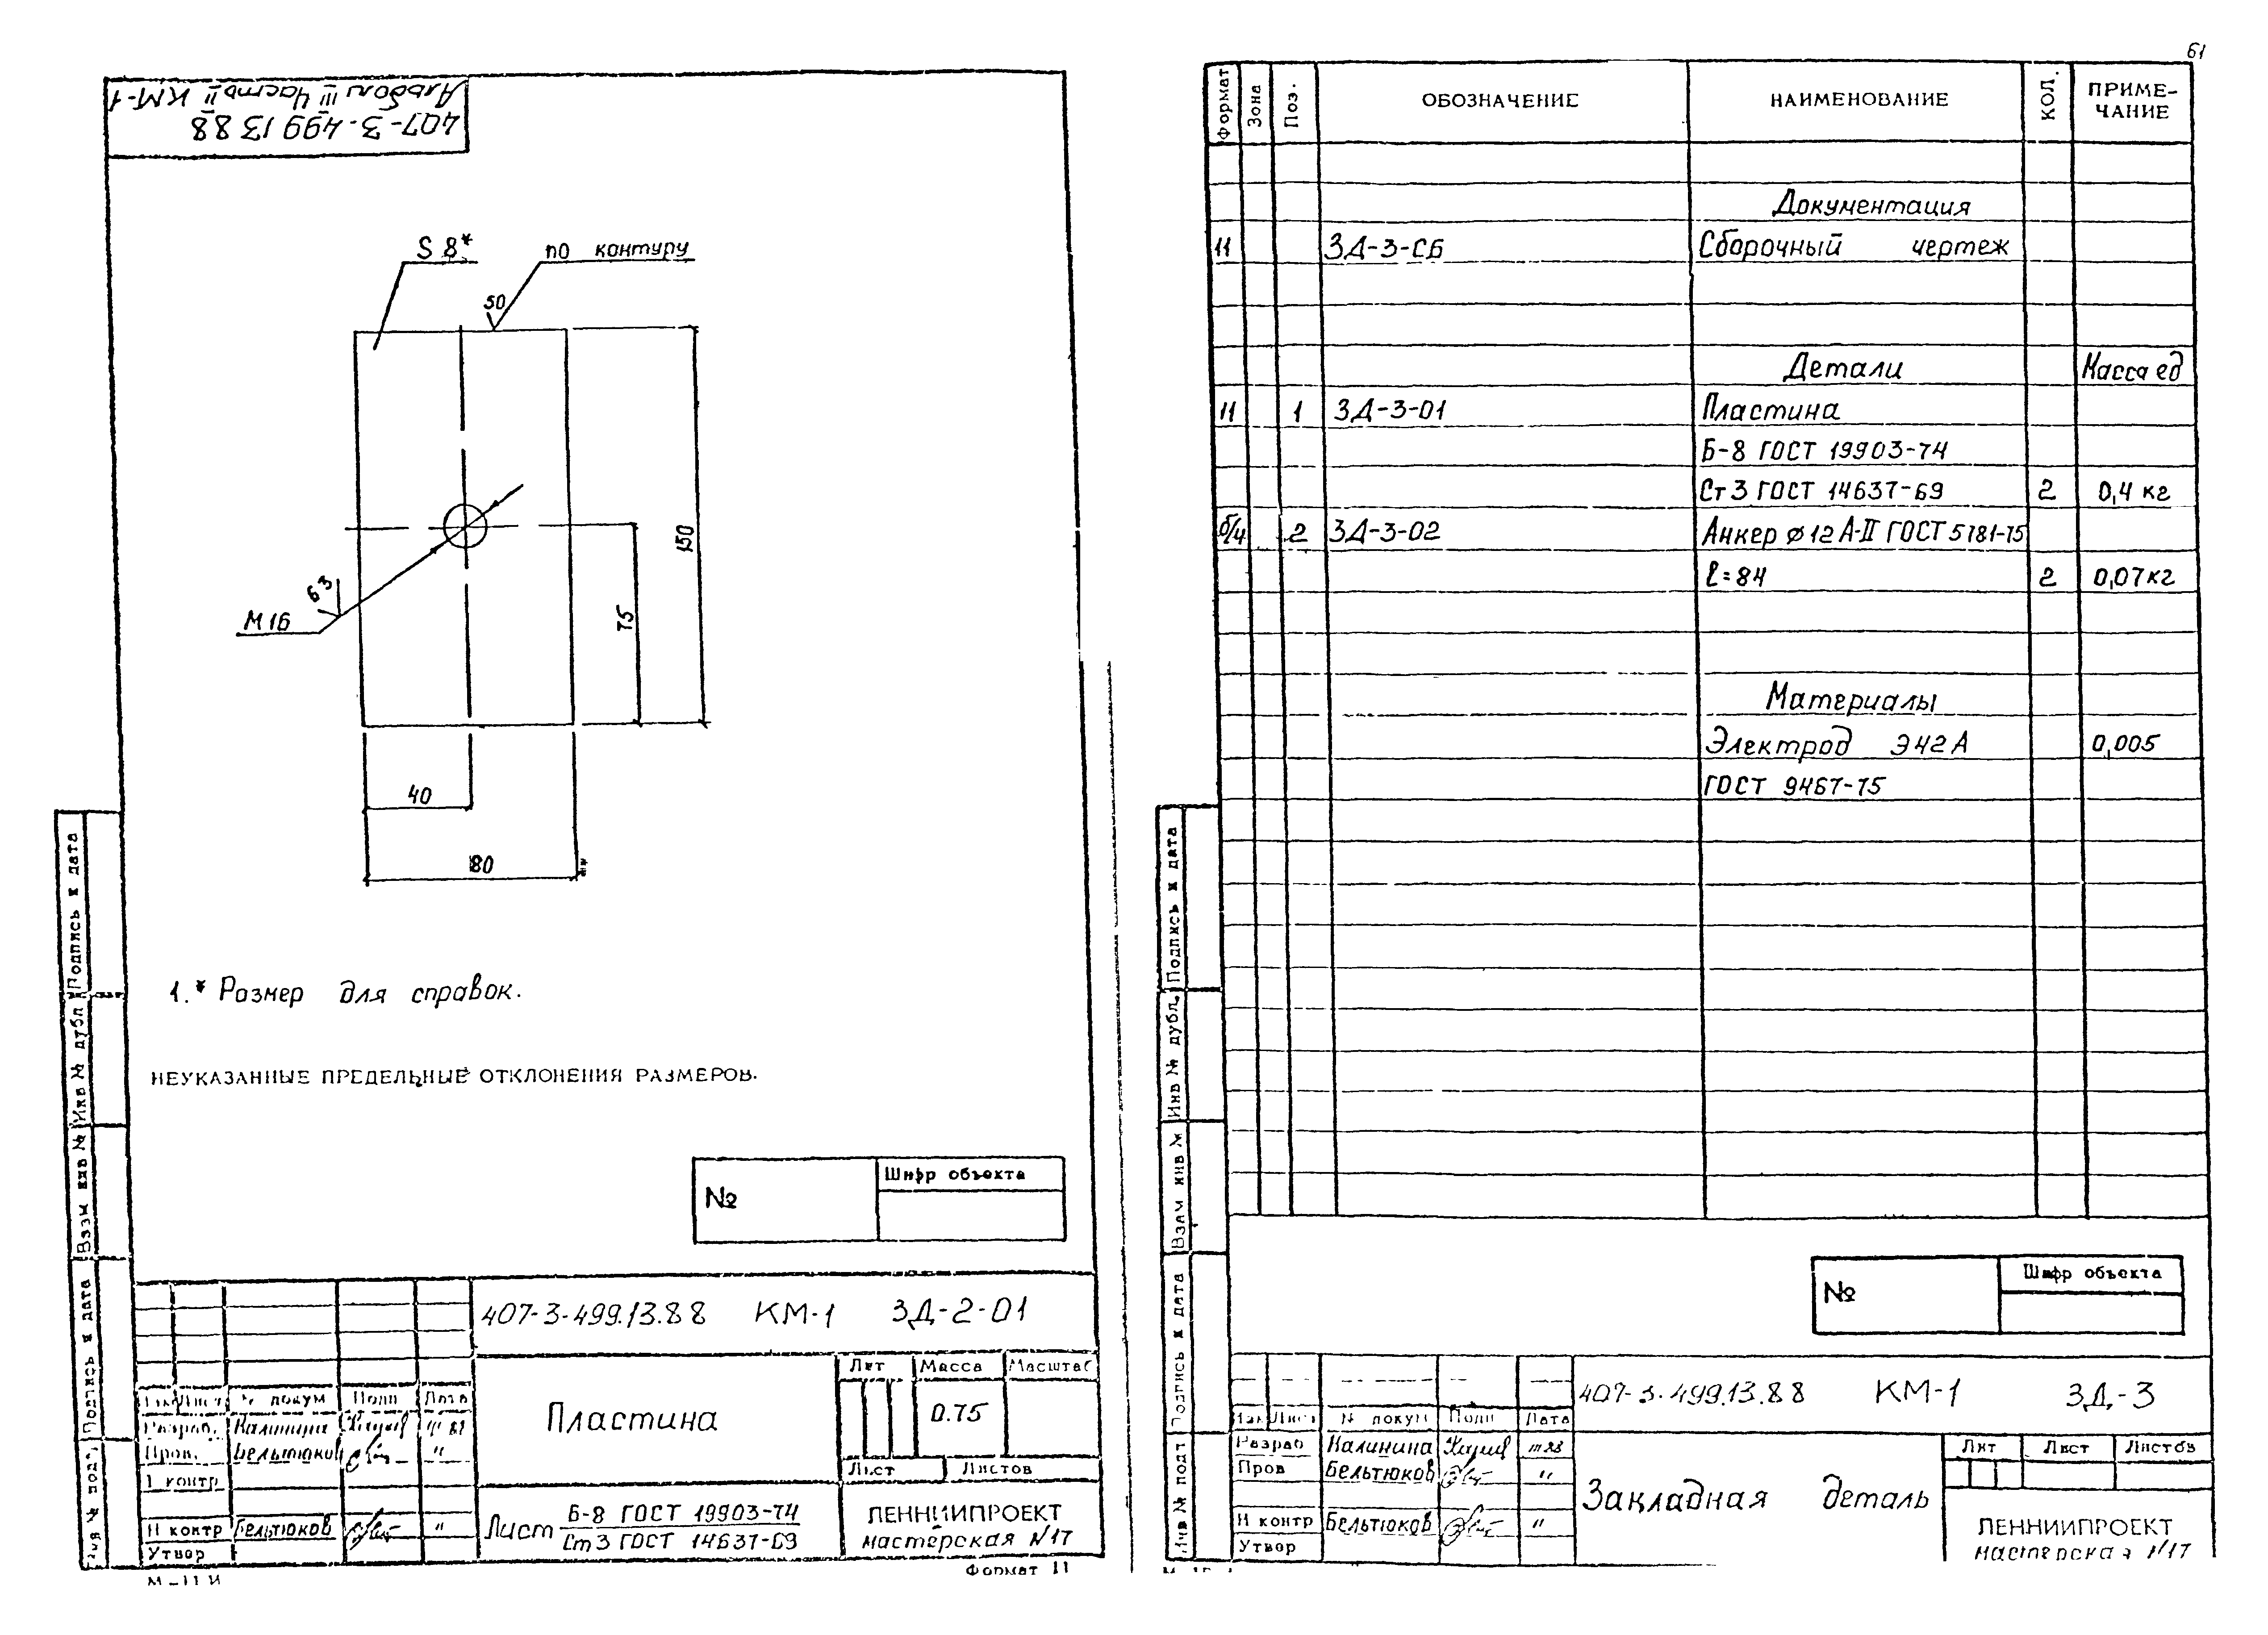 61
407-3-499 13 88
Альбом III Часть II КМ-1
S 8*
по контуру
50
150
75
63
М16
40
80
1.* Размер для справок.
НЕУКАЗАННЫЕ ПРЕДЕЛЬНЫЕ ОТКЛОНЕНИЯ РАЗМЕРОВ.
№
Шифр объекта
407-3-499.13.88 КМ-1 ЗД-2-01
Лит Масса Масштаб
Пластина
0.75
Лист № докум Подп Дата
Разраб. Калинина
Пров. Бельтюков "
контр
Н контр Бельтюков "
Утвер
Лист Листов
Лист Б-8 ГОСТ 19903-74
Ст3 ГОСТ 14637-69
ЛЕННИИПРОЕКТ
мастерская N17
Формат 11
Подпись и дата
Инв № дубл
Взам инв №
Подпись и дата
Формат
Зона
Поз.
ОБОЗНАЧЕНИЕ
НАИМЕНОВАНИЕ
КОЛ.
ПРИМЕ-
ЧАНИЕ
Документация
11 ЗД-3-СБ Сборочный чертеж
Детали Масса ед
11 1 ЗД-3-01 Пластина
Б-8 ГОСТ 19903-74
Ст3 ГОСТ 14637-69 2 0,4 кг
б/ч 2 ЗД-3-02 Анкер ⌀12 А-II ГОСТ 5781-75
ℓ=84 2 0,07кг
Материалы
Электрод Э42А 0,005
ГОСТ 9467-75
№
Шифр объекта
407-3-499.13.88 КМ-1 ЗД-3
Лист № докум Подп Дата
Разраб Калинина
Пров Бельтюков "
Н контр Бельтюков "
Утвер
Закладная деталь
Лит Лист Листов
ЛЕННИИПРОЕКТ
мастерская N17
Подпись и дата
Инв № дубл.
Взам инв №
Подпись и дата
Инв № подп